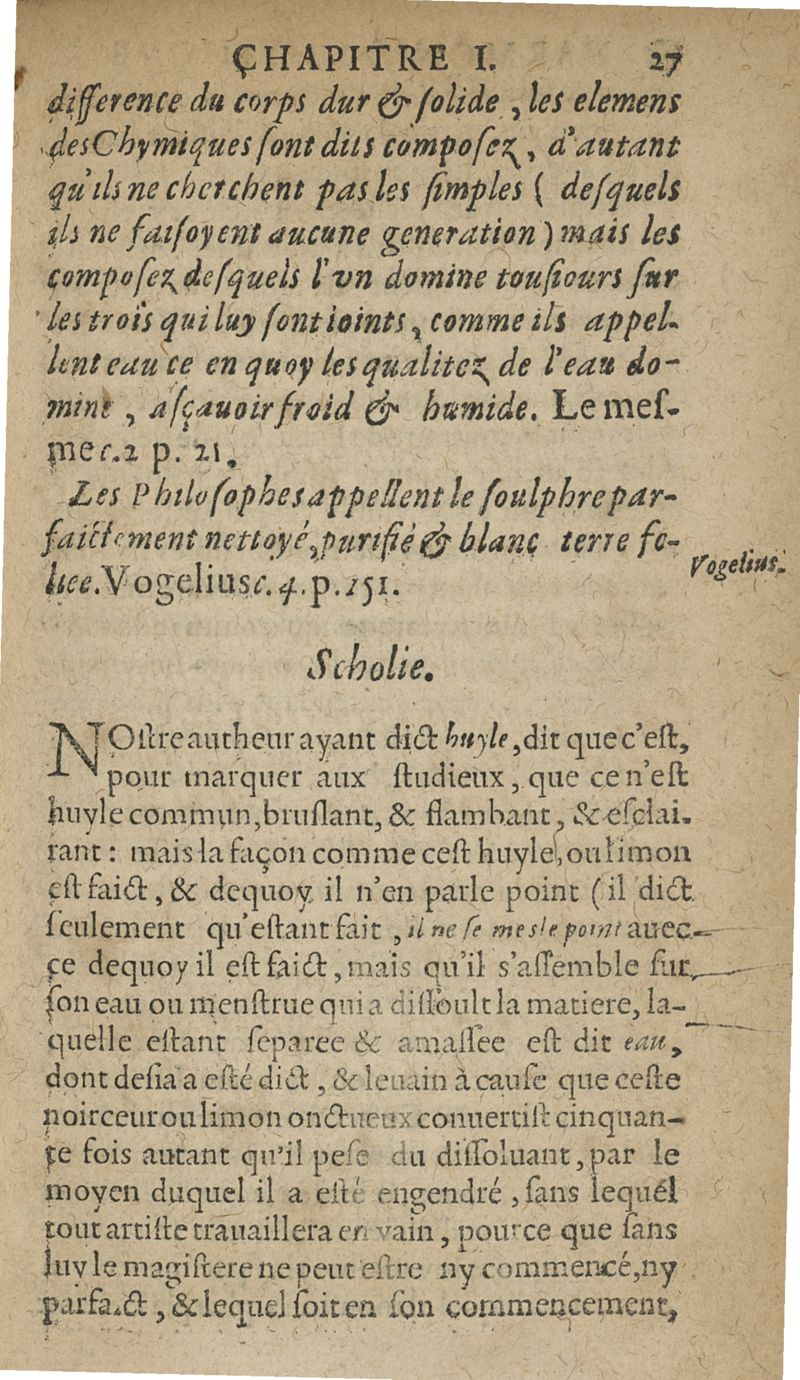 ÇHAPITRE I. 27
difference du corps dur & ſolide , les elemens
des Chymiques ſont dits compoſez , d'autant
qu'ils ne cherchent pas les ſimples ( deſquels
ils ne faiſoyent aucune generation ) mais les
compoſez deſquels l'vn domine touſiours ſur
les trois qui luy ſont ioints , comme ils appel-
lent eau ce en quoy les qualitez de l'eau do-
mine , aſçauoir froid & humide. Le meſ-
me c.2 p. 21.
Les Philoſophes appellent le ſoulphre par-
faictement nettoyé, purifié & blanc terre fe-
liee. Vogelius c. 4. p. 151.
Vogelius.
Scholie.
NOſtre autheur ayant dict huyle, dit que c'eſt,
pour marquer aux ſtudieux, que ce n'eſt
huyle commun, bruſlant, & flambant , & eſclai-
rant : mais la façon comme ceſt huyle, ou limon
eſt faict , & dequoy il n'en parle point ( il dict
ſeulement qu'eſtant fait , il ne ſe mesle point auec
ce dequoy il eſt faict , mais qu'il s'aſſemble ſur
ſon eau ou menſtrue qui a diſſoult la matiere, la-
quelle eſtant ſeparee & amaſſee eſt dit eau,
dont deſia a eſté dict , & leuain à cauſe que ceſte
noirceur ou limon onctueux conuertiſt cinquan-
te fois autant qu'il peſe du diſſoluant, par le
moyen duquel il a eſté engendré , ſans lequel
tout artiſte trauaillera en vain , pource que ſans
luy le magiſtere ne peut eſtre ny commencé, ny
parfaict , & lequel ſoit en ſon commencement,